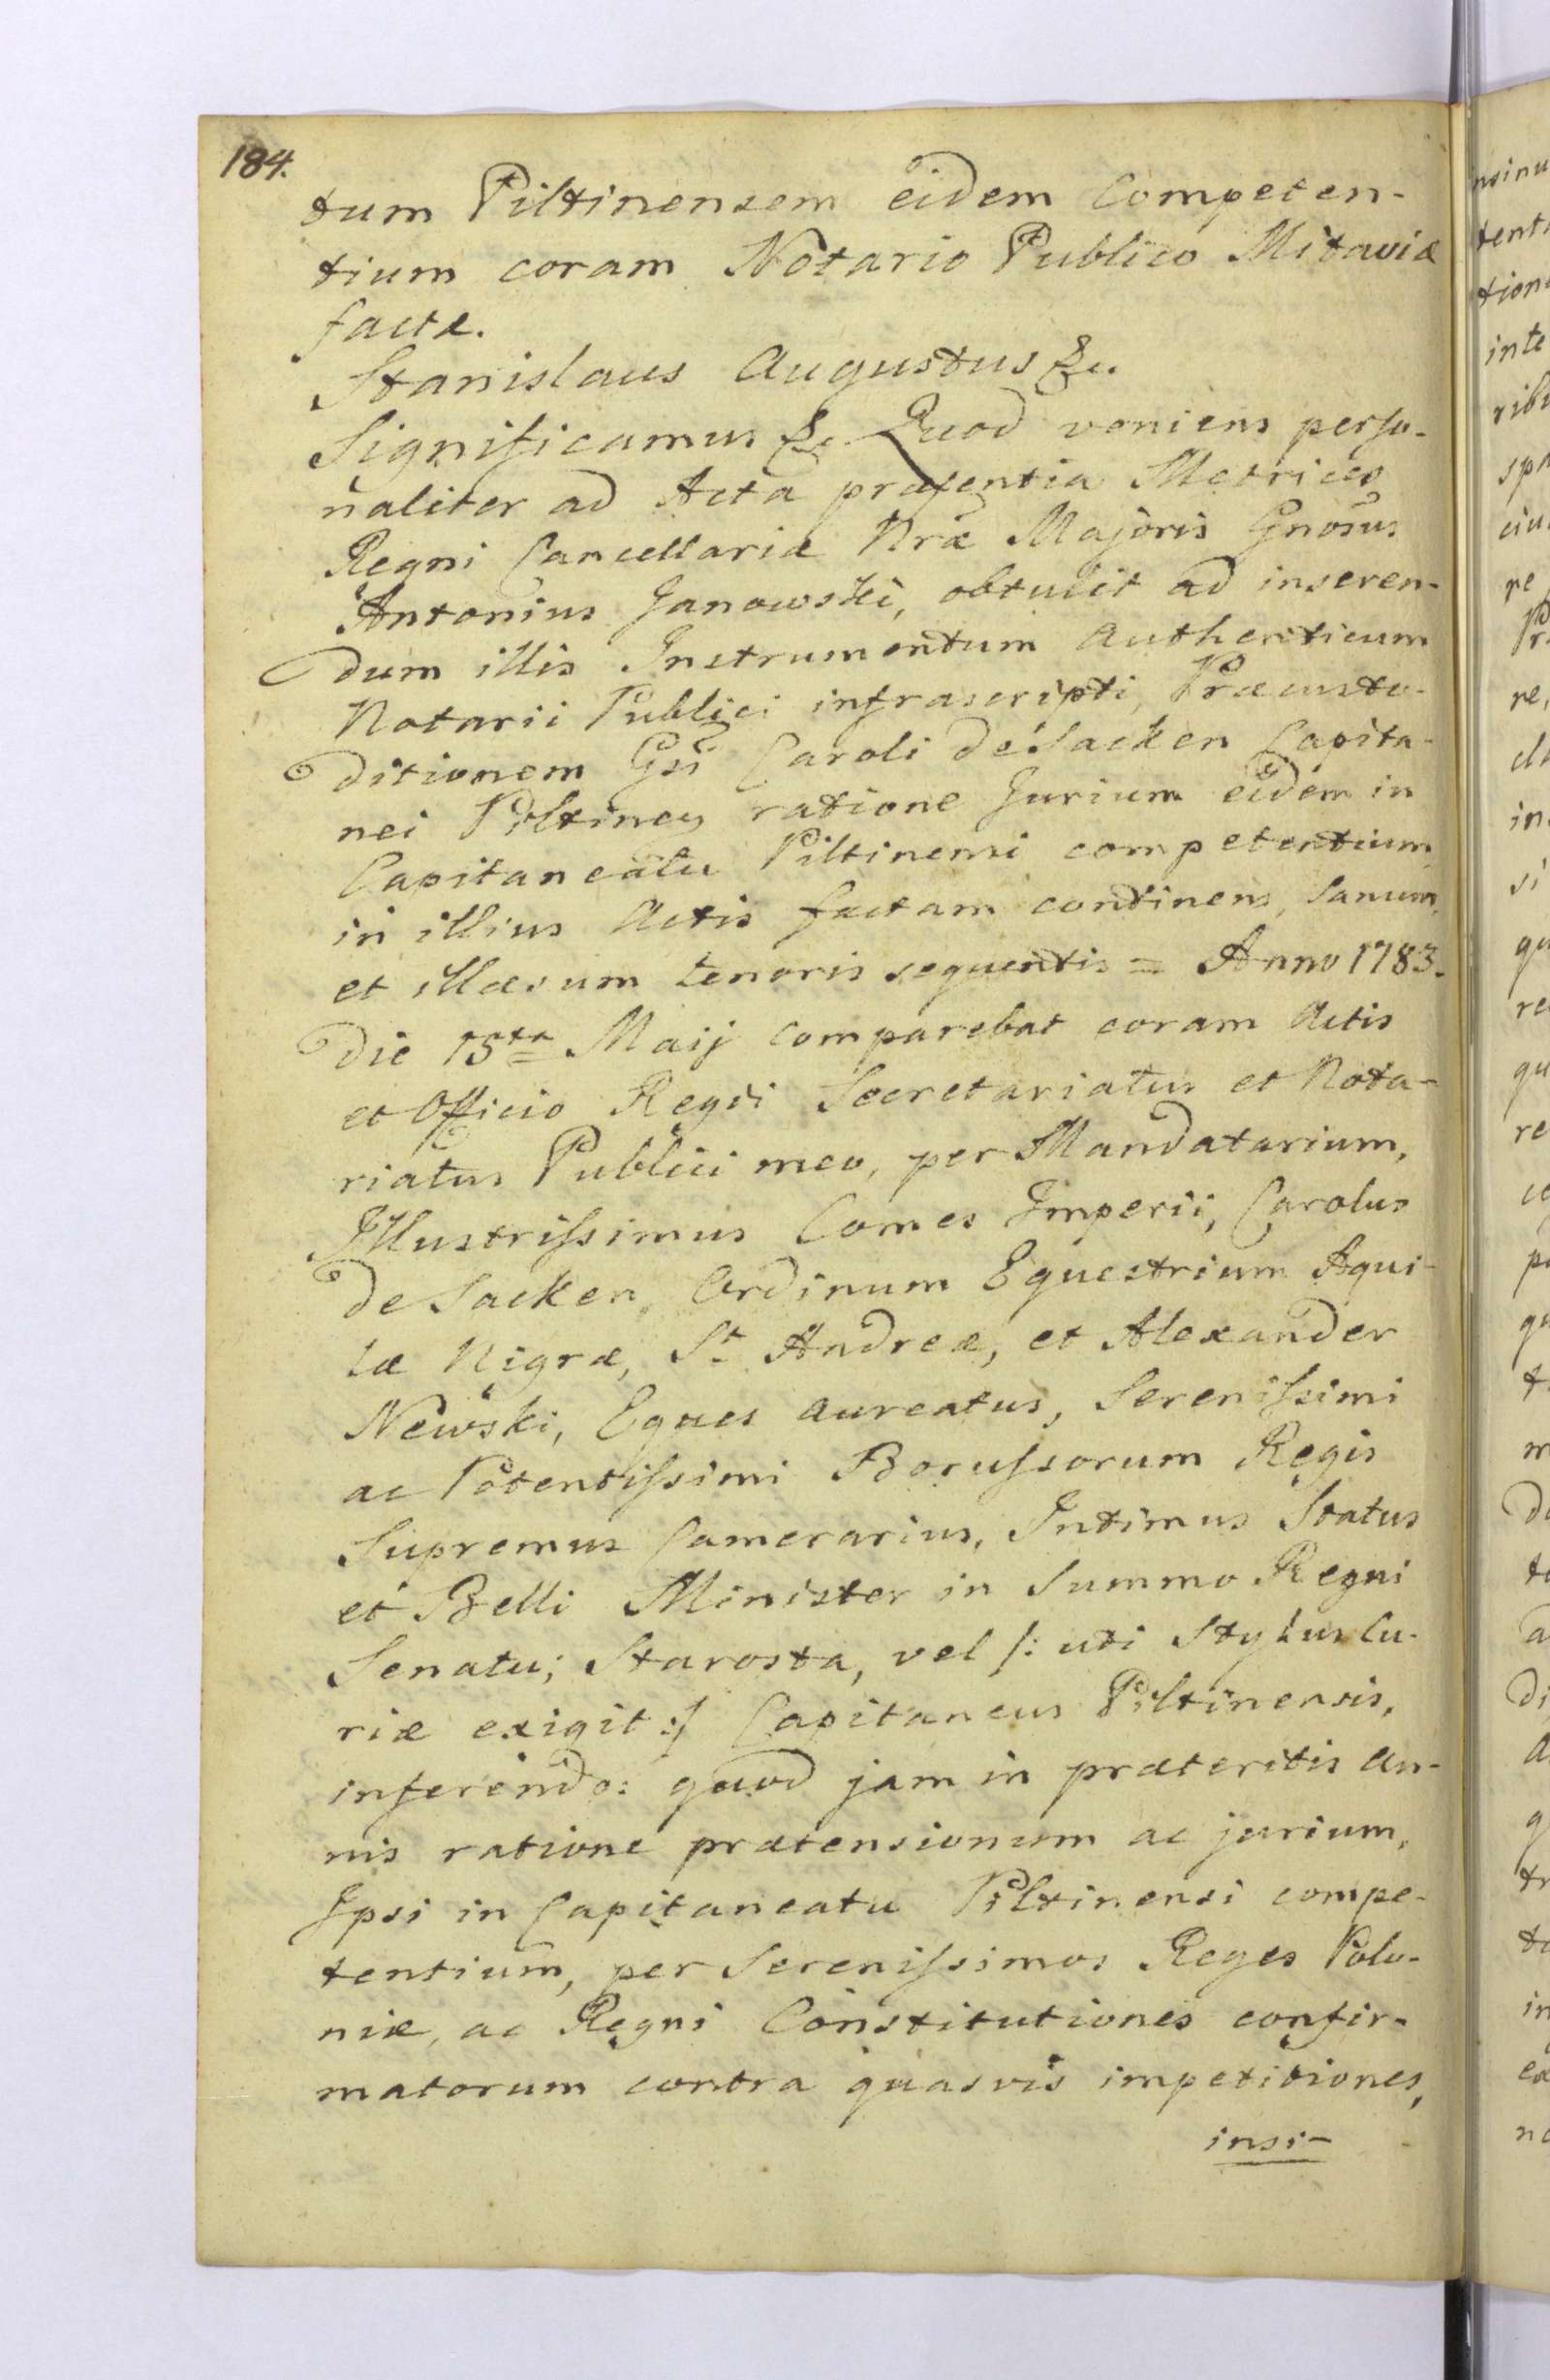 184.
tum Piltinensem eidem Competen-
tium coram Notario Publico Mitaviæ
factæ.
Stanislaus Augustus &c.
Significamus &c. Quod veniens perso-
naliter ad Acta præsentia Metrices
Regni Cancellariæ Nræ Majoris Gnosus
Antonius Janowski, obtulit ad inseren-
dum illis Instrumentum Authenticum
Notarii Publici infrascripti, Præcusto-
ditionem Gsi Caroli de Sacken Capita-
nei Piltinen ratione Jurium eidem in
Capitaneatu Piltinensi competentium,
in illius Actis factam continens, Sanum,
et illæsum tenoris sequentis = Anno 1783.
Die 15ta Maij Comparebat coram Actis
et Officio Regii Secretariatus et Nota-
riatus Publici meo, per Mandatarium,
Illustrissimus Comes Imperii, Carolus
de Sacken, Ordinum Equestrium Aqui-
læ Nigræ, St Andreæ, et Alexander
Newski, Eques Aureatus, Serenissimi
ac Potentissimi Borussorum Regis
Supremus Camerarius, Intimus Status
et Belli Minister in Summo Regni
Senatu; Starosta, vel /: uti Stylus Cu-
riæ exigit :/ Capitaneus Piltinensis,
inferendo: quod jam in præteritis An-
nis ratione prætensionum ac jurium,
Ipsi in Capitaneatu Piltinensi compe-
tentium, per Serenissimos Reges Polo-
niæ, ac Regni Constitutiones confir-
matorum contra quasvis impetitiones,
insi-